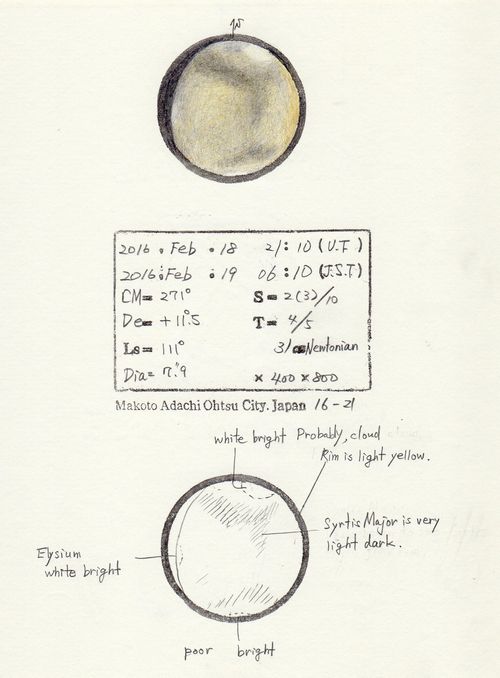 N
2016. Feb. 18 21:10 (U.T)
2016. Feb. 19 06:10 (J.S.T)
CM= 271° S= 2(3)/10
De= +11°.5 T= 4/5
Ls= 111° 31 Newtonian
Dia= 7".9 × 400 × 800
Makoto Adachi Ohtsu City. Japan 16-21
white bright Probably, cloud
Rim is light yellow.
Syrtis Major is very
light dark.
Elysium
white bright
poor bright